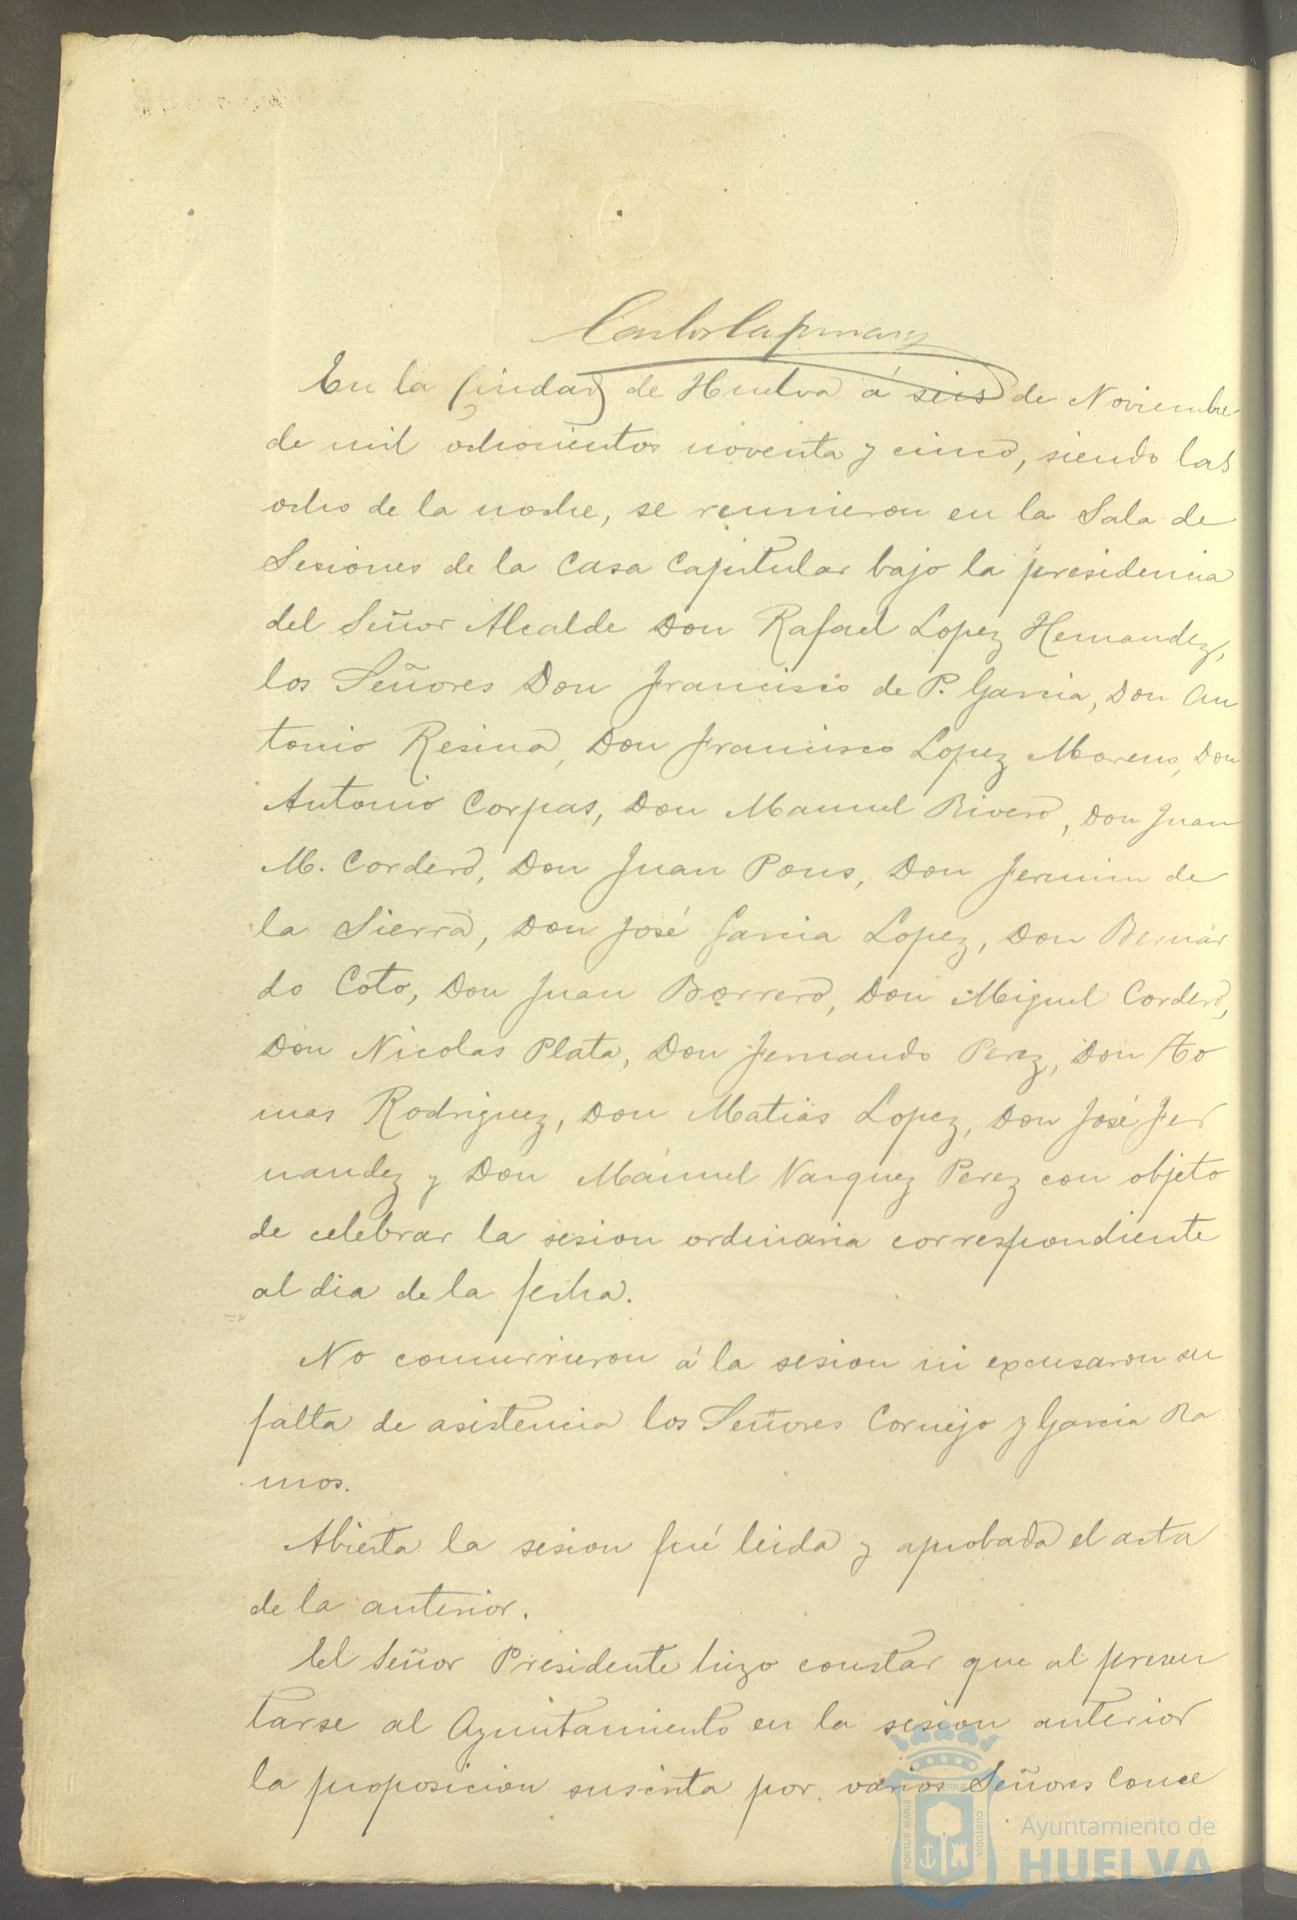 En la Ciudad de Huelva á seis de Noviembre
de mil ochocientos noventa y cinco, siendo las
ocho de la noche, se reunieron en la Sala de
Sesiones de la Casa Capitular bajo la presidencia
del Señor Alcalde Don Rafael Lopez Hernandez,
los Señores Don Francisco de P. Garcia, Don An
tonio Resina, Don Francisco Lopez Moreno, Don
Antonio Corpas, Don Manuel Rivero, Don Juan
M. Cordero, Don Juan Pons, Don Fermin de
la Sierra, Don José Garcia Lopez, Don Bernar
do Coto, Don Juan Borrero, Don Miguel Cordero,
Don Nicolas Plata, Don Fernando Perez, Don To
mas Rodriguez, Don Matias Lopez, Don José Fer
nandez y Don Manuel Vazquez Perez con objeto
de celebrar la sesion ordinaria correspondiente
al dia de la fecha.
No concurrieron á la sesion ni excusaron su
falta de asistencia los Señores Cornejo y Garcia Ra
mos.
Abierta la sesion fué leida y aprobada el acta
de la anterior.
El Señor Presidente hizo constar que al presen
tarse al Ayuntamiento en la sesion anterior
la proposicion suscrita por varios Señores Conce
PORTUS MARIS
TERRAE
CUSTODIA
Ayuntamiento de
HUELVA